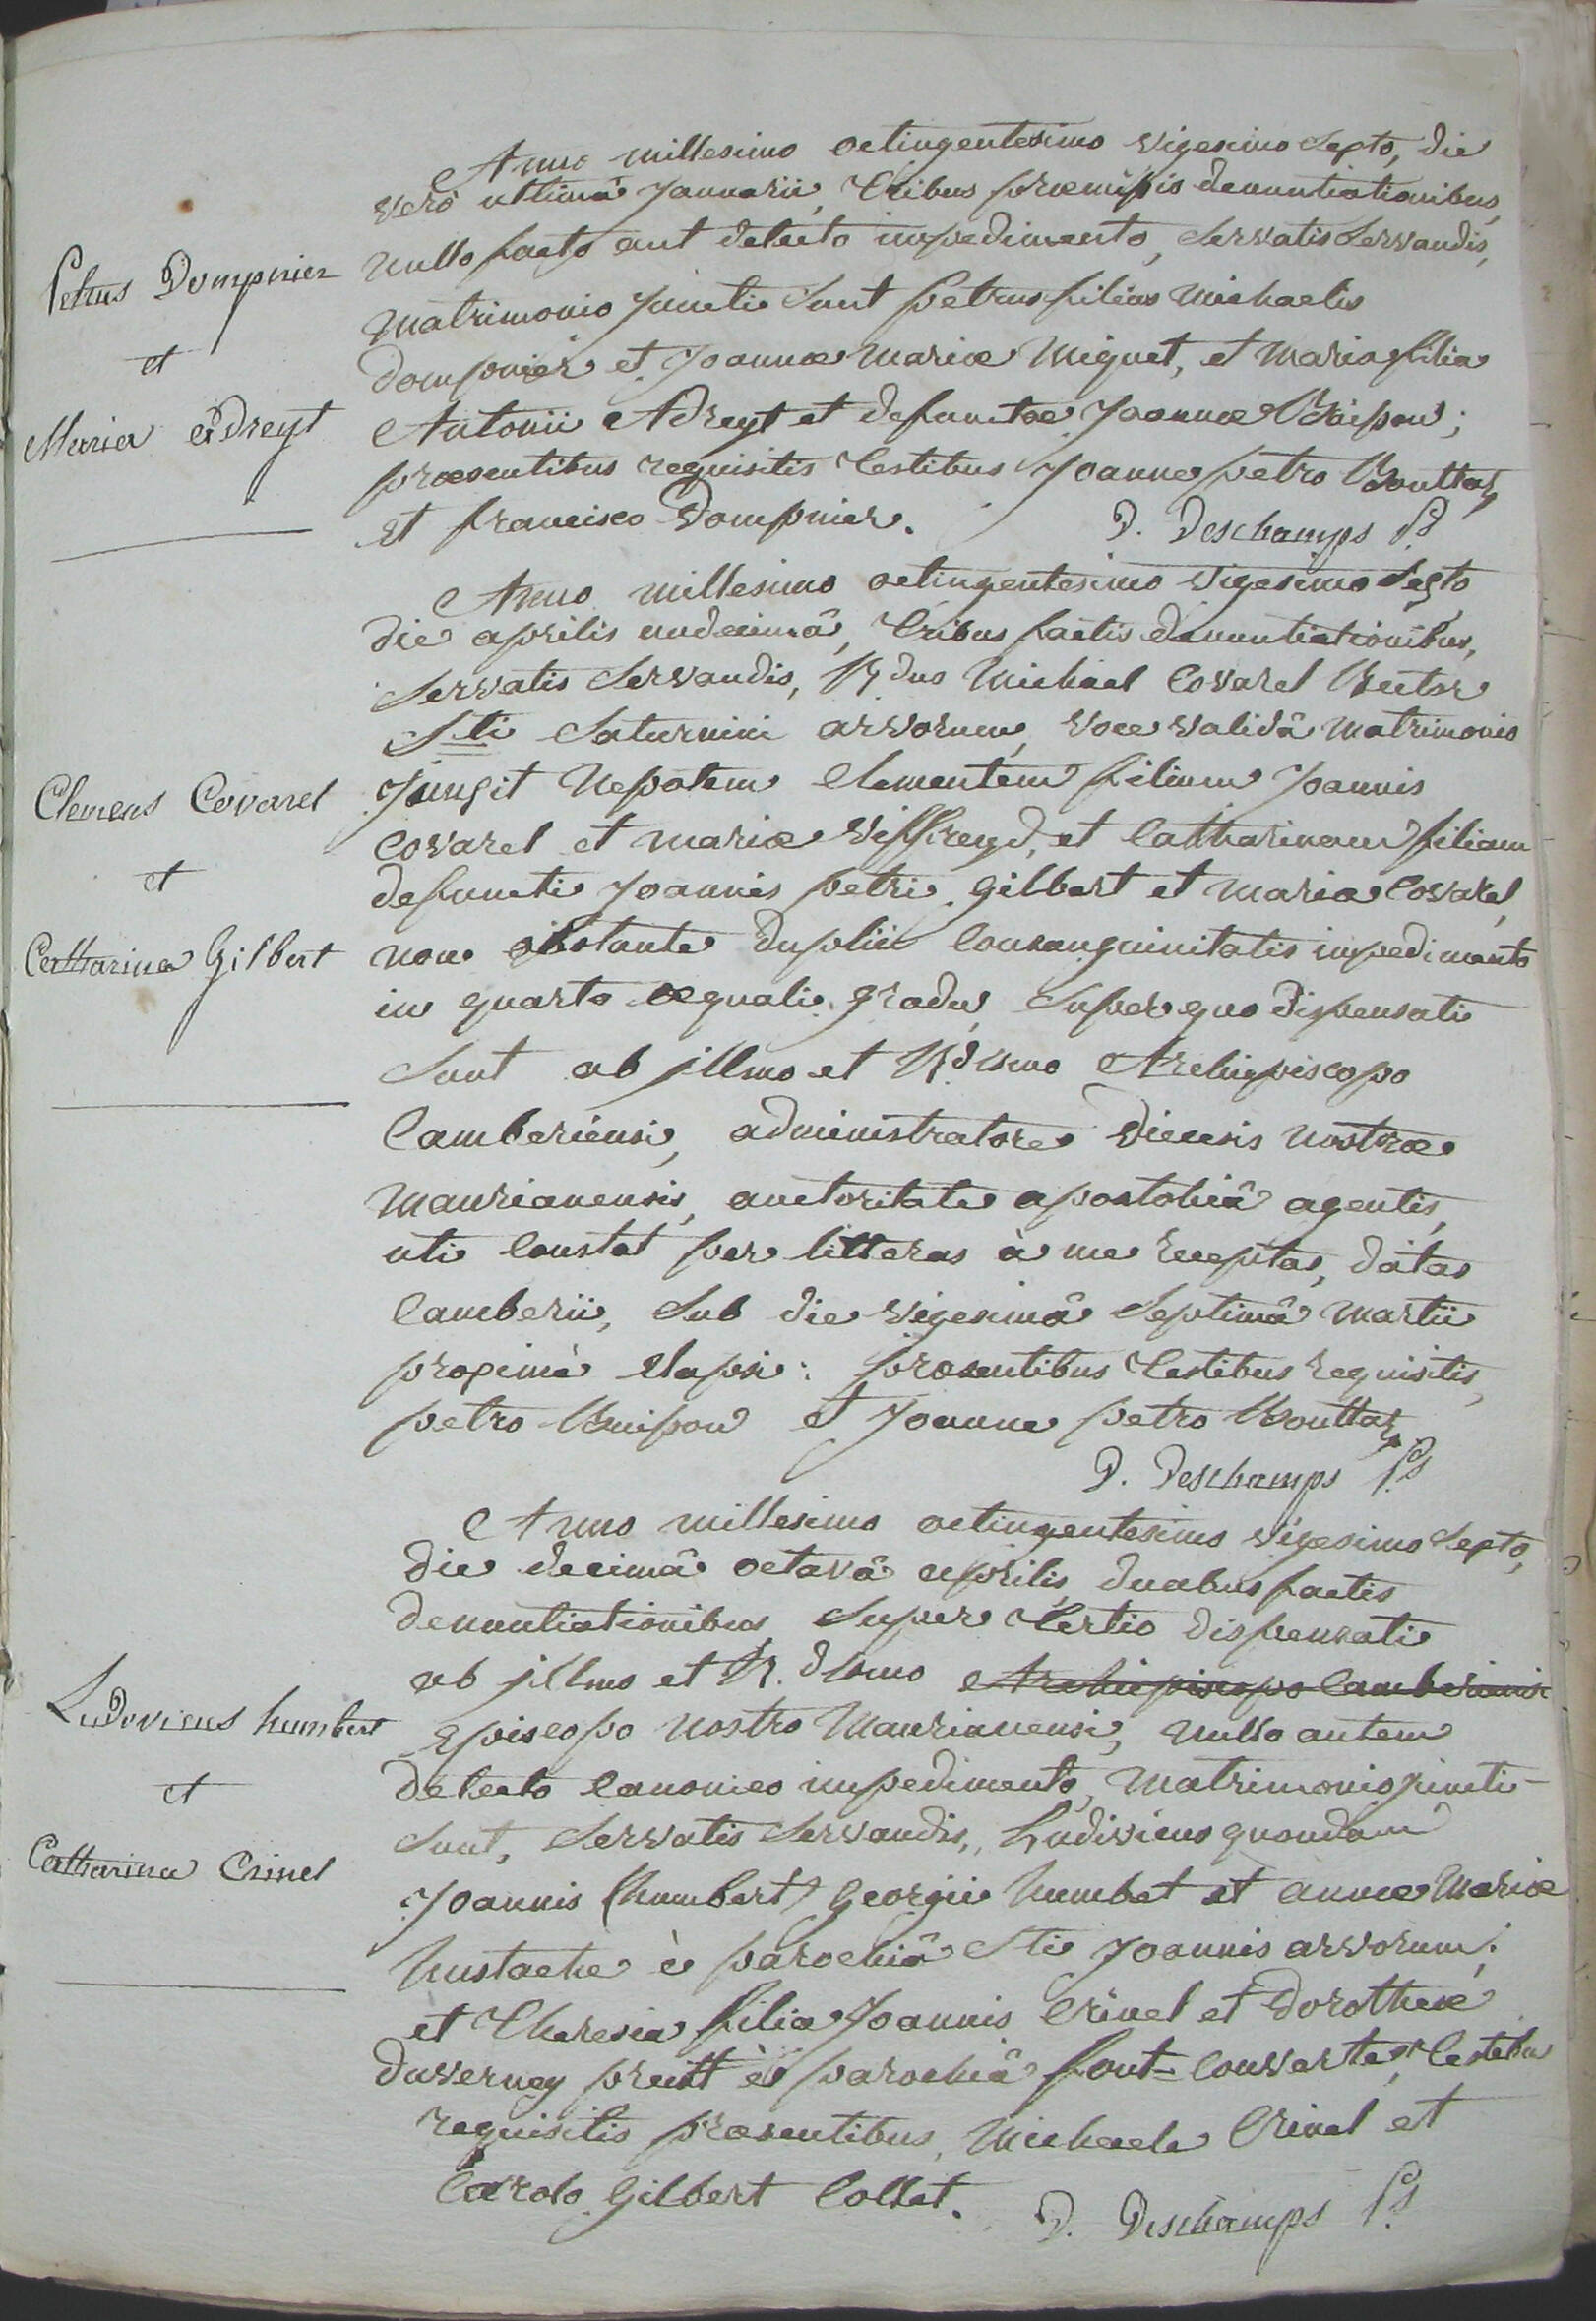 Anno millesimo octingentesimo vigesimo sexto, die
verò ultimâ Januarii, tribus præmissis denuntiationibus,
nullo facto aut detecto impedimento, servatis servandis,
Petrus Dompnier
matrimonio juncti sunt petrus filius michaelis
et
Dompnier et Joannæ mariæ Miquet, et maria filia
Maria Adreyt
Antonii Adreyt et defunctæ Joannæ Buisson;
præsentibus requisitis testibus Joanne petro Bouttaz
et francisco Dompnier.
D. Deschamps Pd
Anno millesimo octingentesimo vigesimo sexto
die aprilis undecimâ, tribus factis denuntiationibus,
servatis servandis, Rdus Michael Covarel Rector
Sti Saturnini arvorum, voce validâ matrimonio
Clemens Covarel
Junxit Nepotem Clementem filium Joannis
Covarel et mariæ Viffreyd, et Catharinam filiam
et
defuncti Joannis petri Gilbert et maria Covarel,
Catharina Gilbert
non obstante duplici Consanguinitatis impedimento
in quarto æquali gradu, super quo dispensati
sunt ab jllmo et Rdismo Archiepiscopo
Camberiensi, administratore Diecesis nostræ
Maurianensis, auctoritate apostolicâ agentis,
uti Constat per litteras à me receptas, datas
Camberii, sub die vigesimâ septimâ martii
proximè elapsi: præsentibus testibus requisitis,
petro Buisson et Joanne petro Bouttaz
D. Deschamps Pd
Anno millesimo octingentesimo vigesimo sexto,
die decimâ octavâ aprilis, duabus factis
denuntiationibus, super tertio dispensati
ab jllmo et R.dismo Archiepiscopo Camberiensi
Ludovicus humbert
Episcopo nostro Maurianensi, nullo autem
et
detecto Canonico impedimento, matrimonio juncti
sunt, servatis servandis, Ludivicus quondam
Catharina Crinel
Joannis (humbert) Georgii humbet et annæ Mariæ
hustache è parochiâ Sti Joannis arvorum;
et Theresia filia Joannis Crinel et Dorotheæ
Duverney è parochiâ font-Couverte, testibus
requisitis præsentibus, Michaele Crinel et
Carolo Gilbert Collet.
D. Deschamps Pd